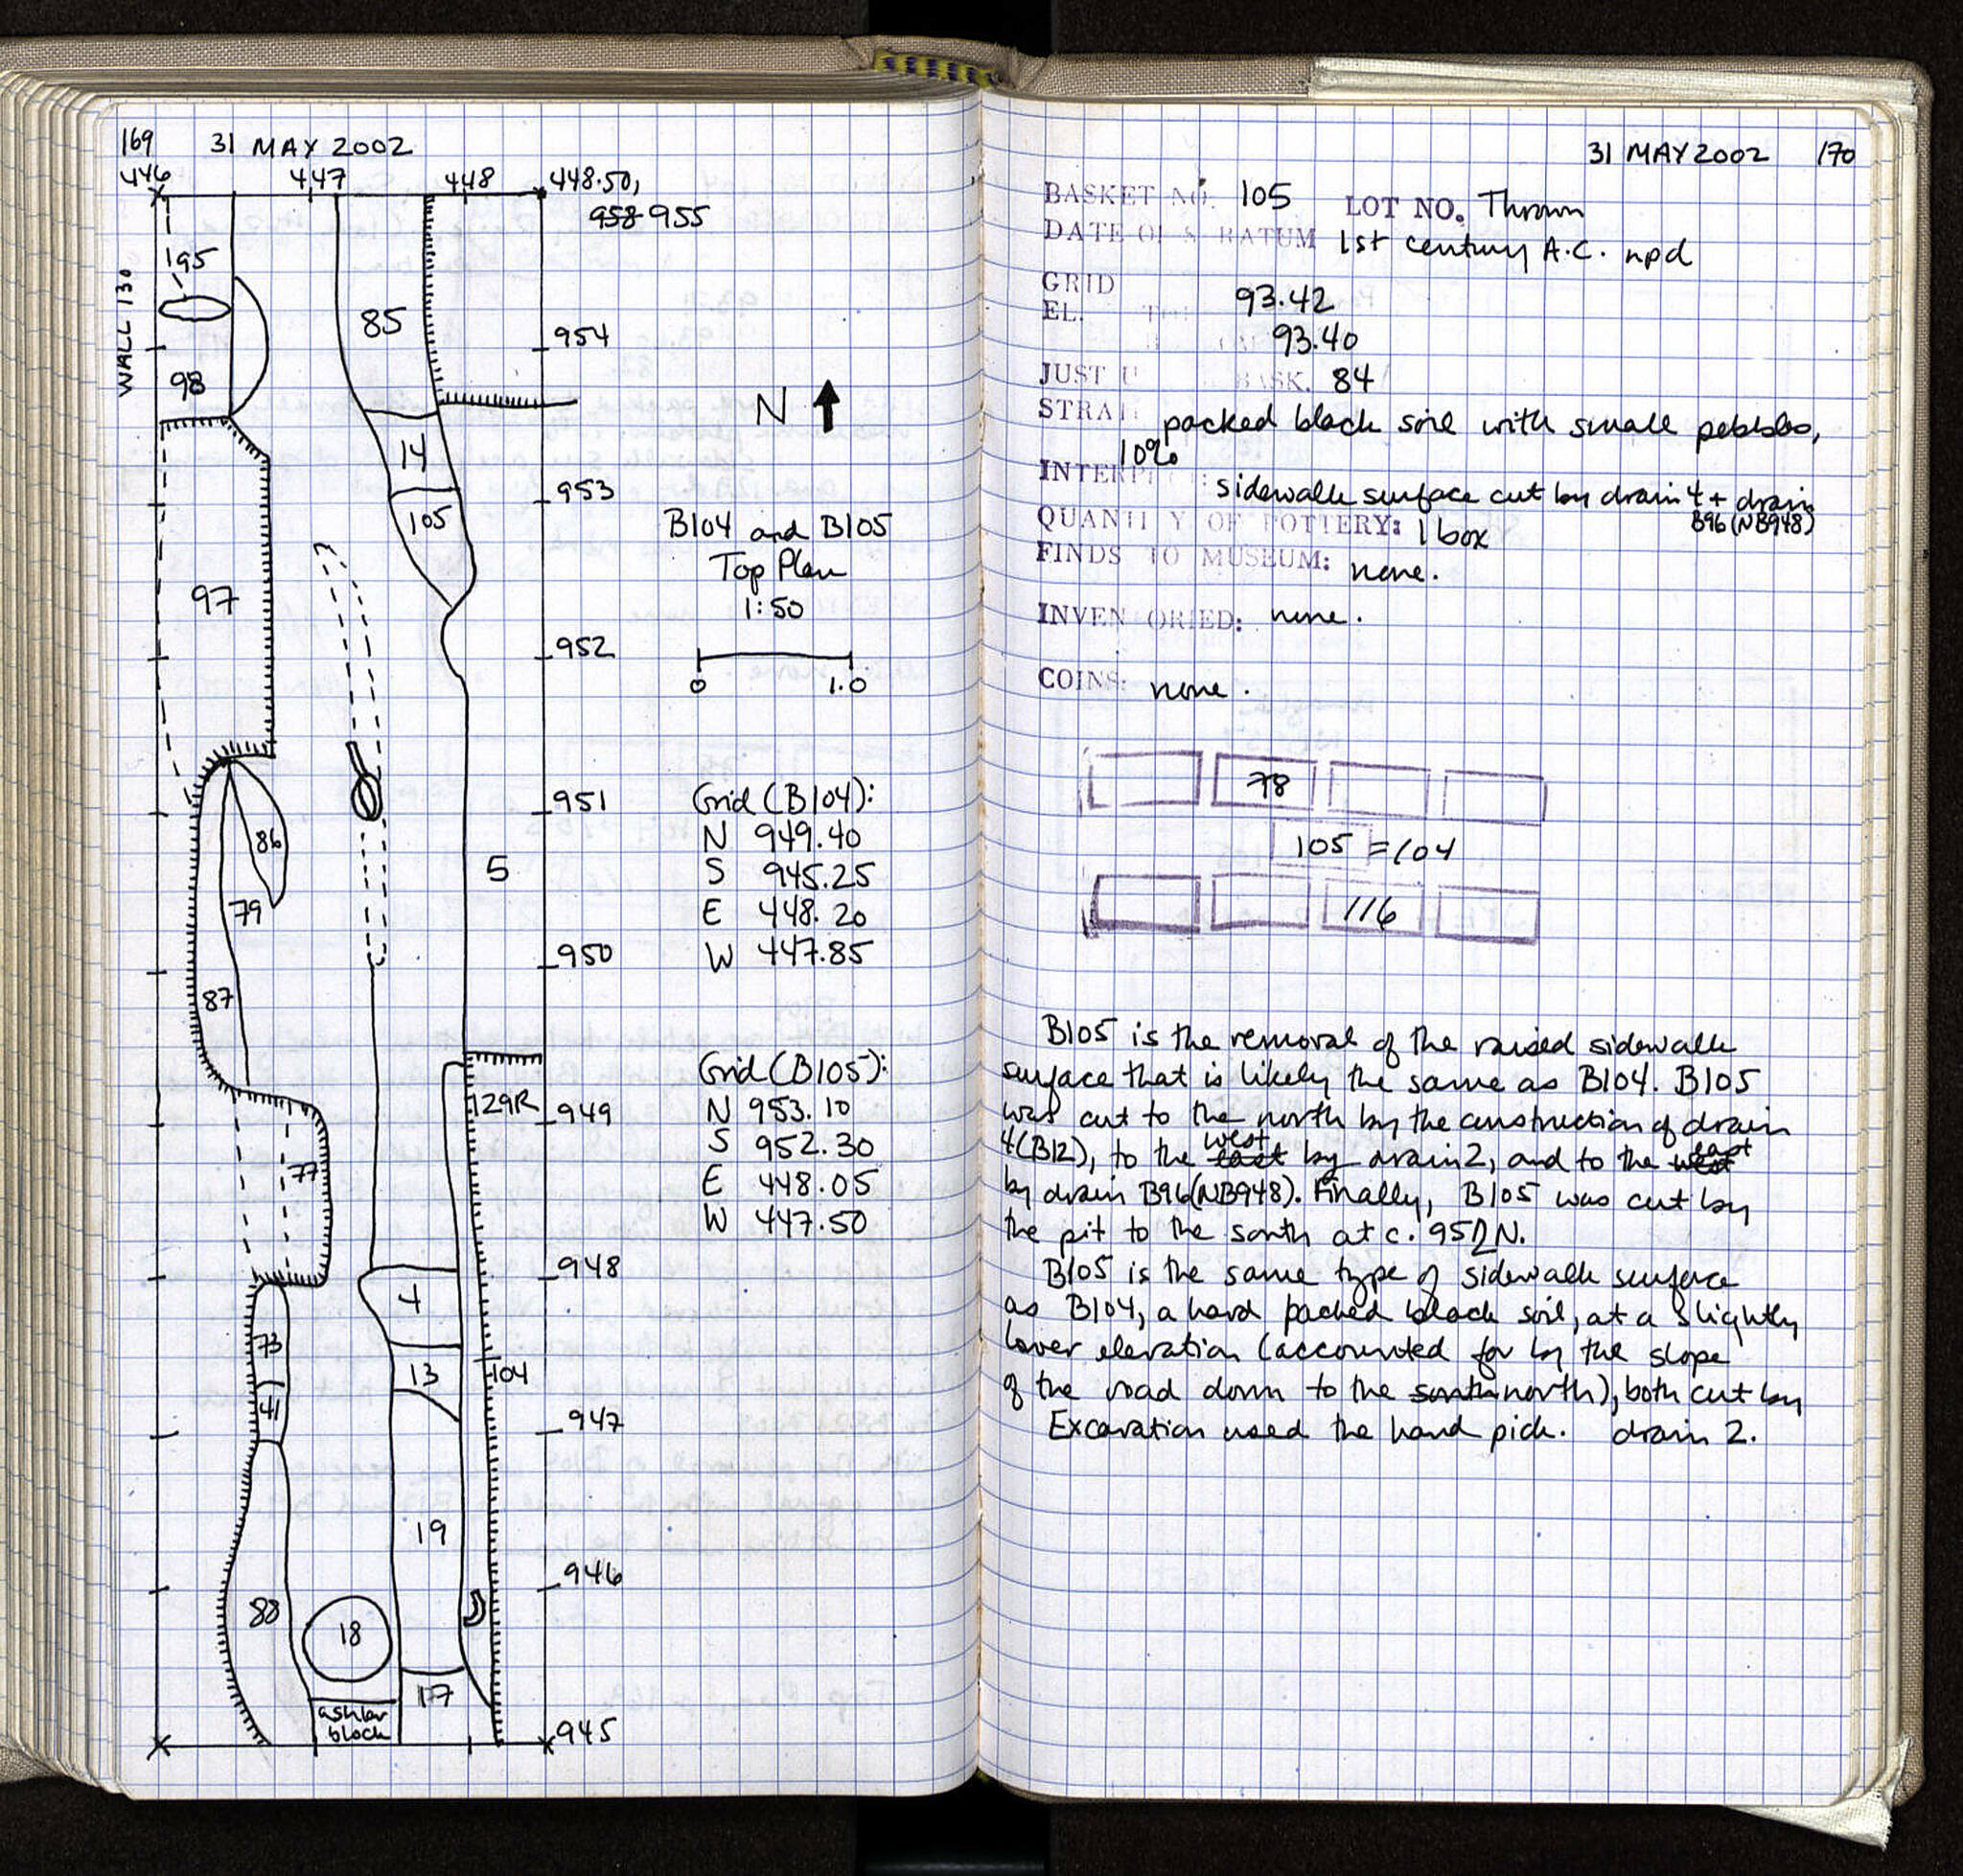 169 31 MAY 2002
446 447 448 448.50,
958 955
WALL 130
195
98
85
954
N
14
953
105
B104 and B105
Top Plan
1:50
97
952
0 1.0
951
86
79
5
87
950
Grid (B104):
N 949.40
S 945.25
E 448.20
W 447.85
129R
949
77
Grid (B105):
N 953.10
S 952.30
E 448.05
W 447.50
948
4
73
13
104
41
947
19
946
88
18
17
ashlar
block
945
31 MAY 2002 170
BASKET NO. 105 LOT NO. Thrown
DATE OF STRATUM 1st century A.C. npd
GRID
93.42
EL.
93.40
JUST U BASK. 84
STRA packed black soil with small pebbles,
10%
INTERP : sidewalk surface cut by drain 4 + drain
B96 (NB948)
QUANTITY OF POTTERY: 1 box
FINDS TO MUSEUM: none.
INVENTORIED: none.
COINS: none.
78
105 = 104
116
B105 is the removal of the raised sidewalk
surface that is likely the same as B104. B105
was cut to the north by the construction of drain
4(B12), to the east west by drain 2, and to the west east
by drain B96(NB948). Finally, B105 was cut by
the pit to the south at c. 952N.
B105 is the same type of sidewalk surface
as B104, a hard packed black soil, at a slightly
lower elevation (accounted for by the slope
of the road down to the south north), both cut by
drain 2.
Excavation used the hand pick.